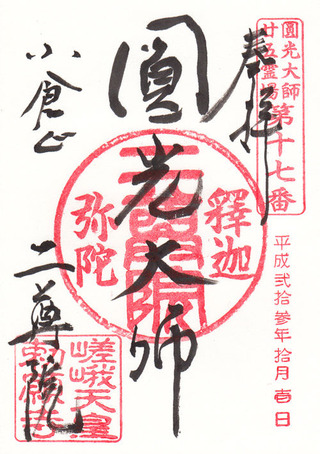 奉拝
圓光大師
廿五霊場
第十七番
平成弐拾参年拾月壱日
圓光大師
釋迦
弥陀
小倉山
二尊院
嵯峨天皇
勅願寺